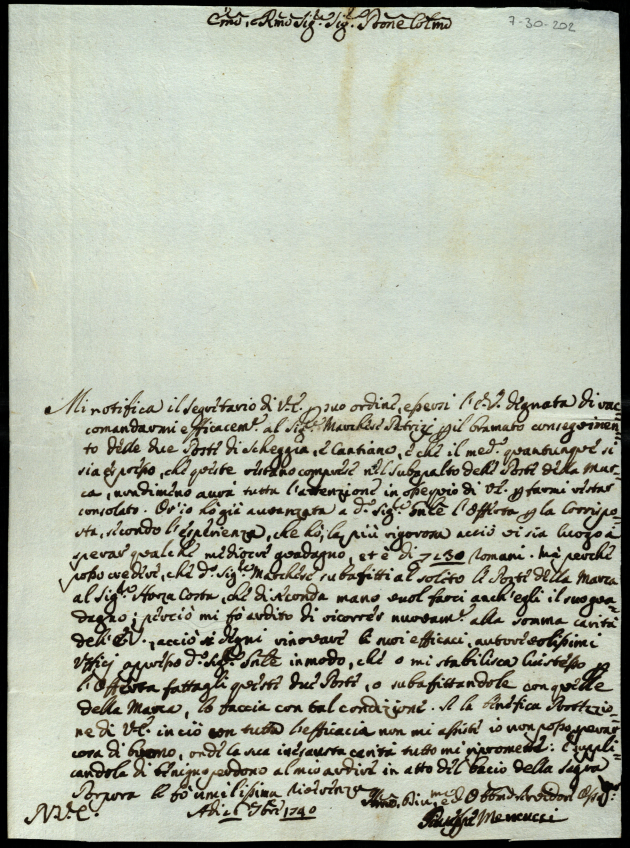 7-30-202
Em̃o, e Rm̃o Sig.r Sig.r Pron̄e Colm̃o
Mi notifica il Segretario di V.E. suo ordine, essersi l'E.V. degnata di rac=
comandarmi efficacem.e al Sig.r Marchese Patrizi p il bramato conseguimen=
to delle due Poste di Scheggia, e Cantiano, e che il med.o quantunque si
sia espresso, che queste restano comprese nel Subapalto delle Poste della Mar=
ca, nondimeno avrà tutta l'attenzione in ossequio di V.E. p farmi restar
consolato. Ond'io hò già avanzata a d.o Sig.r l'Offerta p la Corrispo=
sta, secondo l'esperienza, che hò, la più rigorosa acciò vi sia luogo à
sperar qualche mediocre guadagno, et è di 130 romani. Mà perche
posso credere, che d.o Sig.r Marchese subaffitti al solito le Poste della Marca
al Sig.r Costa, che di seconda mano vuol farci anch'egli il suo gua=
dagno; perciò mi fò ardito di ricorrer nuovam.e alla somma carità
dell'E.V., acciò si degni rinovare li suoi efficaci, autorevolissimi
Uffizj appresso d.o Sig.r in modo, che o mi stabilisca lui stesso p
l'Offerta fattagli queste due Poste, o subaffittandole con quelle
della Marca, lo faccia con tal condizione. Se la benefica Protezio=
ne di V.E. in ciò con tutta l'efficacia non mi assiste io non posso sperar
cosa di buono, onde la sua inesausta carità tutto mi riprometto. E suppli=
candola di benigno perdono al mio ardire in atto del bacio della Sagra
Porpora le fò umilissima riverenza
Di V.E. Adi 7bre 1740
Um̃o, Div.mo ed Obblig.mo
Giuseppe Mencucci